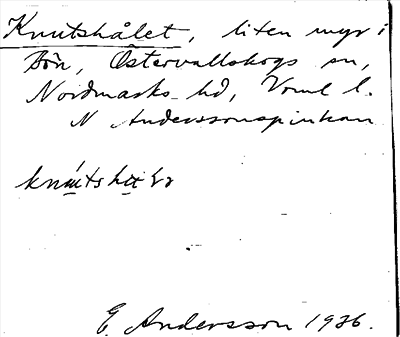 Knutshålet, liten myr i
Bön, Östervallskogs sn,
Nordmarks hd, Vrml l.
N Anderssonspinkan
E. Andersson 1936.